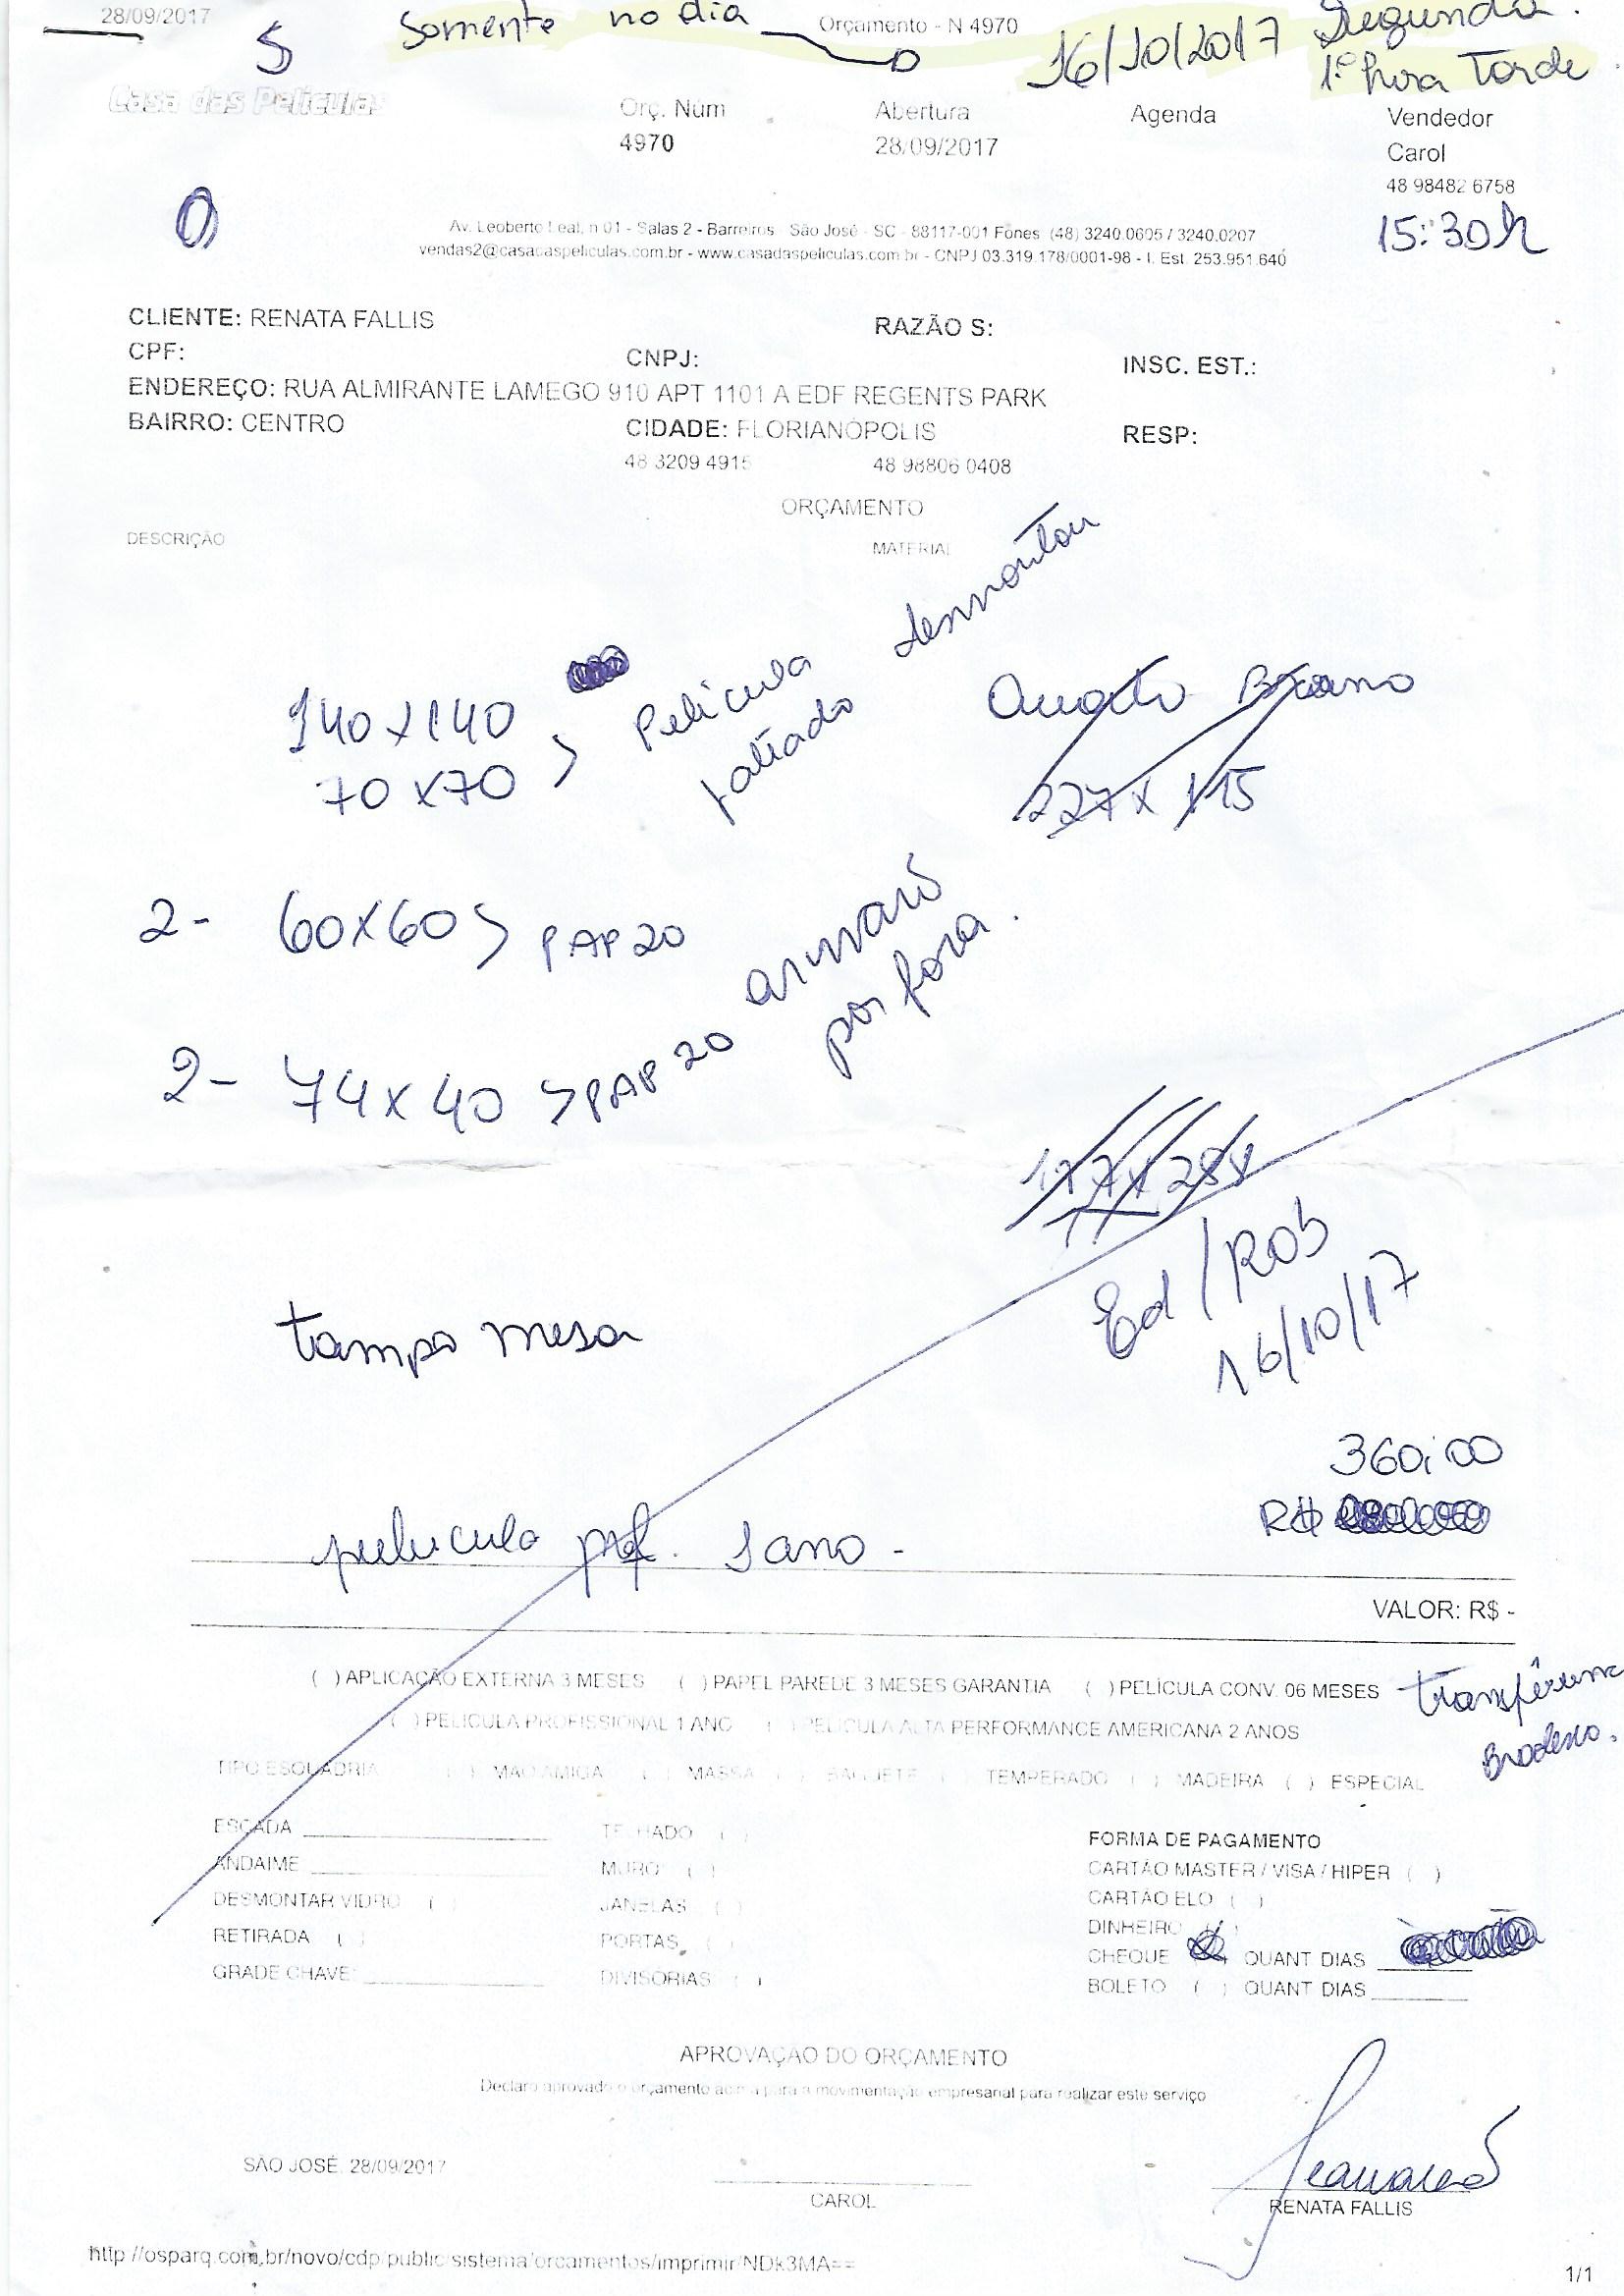 28/09/2017
Orçamento - N 4970
5 Somente no dia 16/10/2017 Segunda.
1ª hora Tarde
Casa das Películas
Orç. Núm
4970
Abertura
28/09/2017
Agenda
Vendedor
Carol
48 98482 6758
15:30h
0
Av. Leoberto Leal, n 01 - Salas 2 - Barreiros - São José - SC - 88117-001 Fones: (48) 3240.0605 / 3240.0207
vendas2@casadaspeliculas.com.br - www.casadaspeliculas.com.br - CNPJ 03.319.178/0001-98 - I. Est. 253.951.640
CLIENTE: RENATA FALLIS
RAZÃO S:
CPF:
CNPJ:
INSC. EST.:
ENDEREÇO: RUA ALMIRANTE LAMEGO 910 APT 1101 A EDF REGENTS PARK
BAIRRO: CENTRO
CIDADE: FLORIANÓPOLIS
RESP:
48 3209 4915
48 98806 0408
ORÇAMENTO
DESCRIÇÃO
MATERIAL
140x140
70x70 > Pelicula jateado
227x115
2- 60x60 > PAP 20
2- 74x40 > PAP 20
por fora.
Ed/Rob
16/10/17
tampo mesa
360,00
R$
pelicula
VALOR: R$ -
( ) APLICAÇÃO EXTERNA 3 MESES ( ) PAPEL PAREDE 3 MESES GARANTIA ( ) PELÍCULA CONV. 06 MESES
( ) PELICULA PROFISSIONAL 1 ANO ( ) PELICULA ALTA PERFORMANCE AMERICANA 2 ANOS
Bradesco.
TIPO ESQUADRIA ( ) MAO AMIGA ( ) MASSA ( ) BAGUETE ( ) TEMPERADO ( ) MADEIRA ( ) ESPECIAL
ESCADA
TELHADO ( )
FORMA DE PAGAMENTO
ANDAIME
MURO ( )
CARTÃO MASTER / VISA / HIPER ( )
DESMONTAR VIDRO ( )
JANELAS ( )
CARTÃO ELO ( )
DINHEIRO ( )
RETIRADA ( )
PORTAS ( )
CHEQUE QUANT DIAS
GRADE CHAVE:
DIVISORIAS ( )
BOLETO ( ) QUANT DIAS
APROVAÇÃO DO ORÇAMENTO
Declaro aprovado o orçamento acima para a movimentação empresarial para realizar este serviço
SÃO JOSÉ, 28/09/2017
CAROL
RENATA FALLIS
http://osparq.com.br/novo/cdp/public/sistema/orcamentos/imprimir/NDk3MA==
1/1